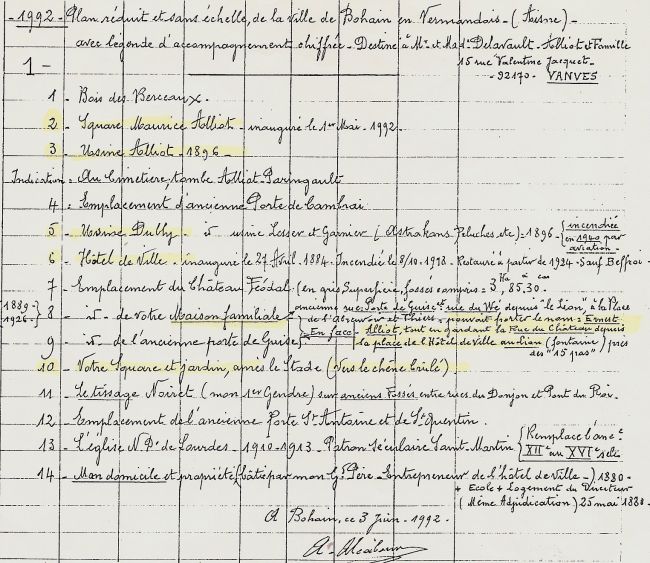 1992 - Plan réduit et sans échelle, de la ville de Bohain en Vermandois - (Aisne) -
avec légende d'accompagnement chiffrée - Destiné à Mr et Mad. Delavault - Alliot et Famille
15 rue Valentine Jacquet -
- 92170 - VANVES
1 -
1 - Bois des Berceaux -
2 - Square Maurice Alliot - inauguré le 1er Mai - 1992 -
3 - Usine Alliot - 1896 -
Indication = Au Cimetière, tombe Alliot - Paringault
4 - Emplacement d'ancienne Porte de Cambrai
5 - Usine Dulhy - usine Lesser et Garnier (Astrakans, Peluches, etc) = 1896 - {incendiée
en 1940 par
aviation -
6 - Hôtel de Ville - inauguré le 27 Avril 1884 - Incendié le 8/10 - 1918 - Restauré à partir de 1924 - Sauf Beffroi -
7 - Emplacement du Château Féodal (en gris Superficie, fossés compris = 3 Ha, 85,30 -
1889-
1926-
8 - d° - de votre Maison familiale = ancienne rue: Porte de Guise = rue du Wé, depuis "le Lion", à la Place
de l'Abreuvoir et Thiers = pouvait porter le nom: Ernest
9 - d° - de l'ancienne porte de Guise} En face - Alliot, tout en gardant la Rue du Château depuis
la place de l'Hôtel de Ville au Lion (fontaine) près
des "15 pas")
10 - Votre Square et jardin, après le Stade (Vers le chêne brûlé)
11 - Le tissage Noiret (mon 1er Gendre) sur anciens Fossés, entre rues du Donjon et Pont du Rix.
12 - Emplacement de l'ancienne Porte St Antoine et de St Quentin.
13 - L'église N.D. de Lourdes - 1910 - 1913 - Patron Séculaire Saint - Martin {Remplace l'anc.e
XIIe au XVIe siècle
14 - Mon domicile et propriété, bâtie par mon Gd Père - Entrepreneur de l'hôtel de Ville -) 1880 -
+ Ecole + Logement du Directeur
(Même Adjudication) 25 mai 1880 -
A Bohain, ce 3 Juin - 1992 -